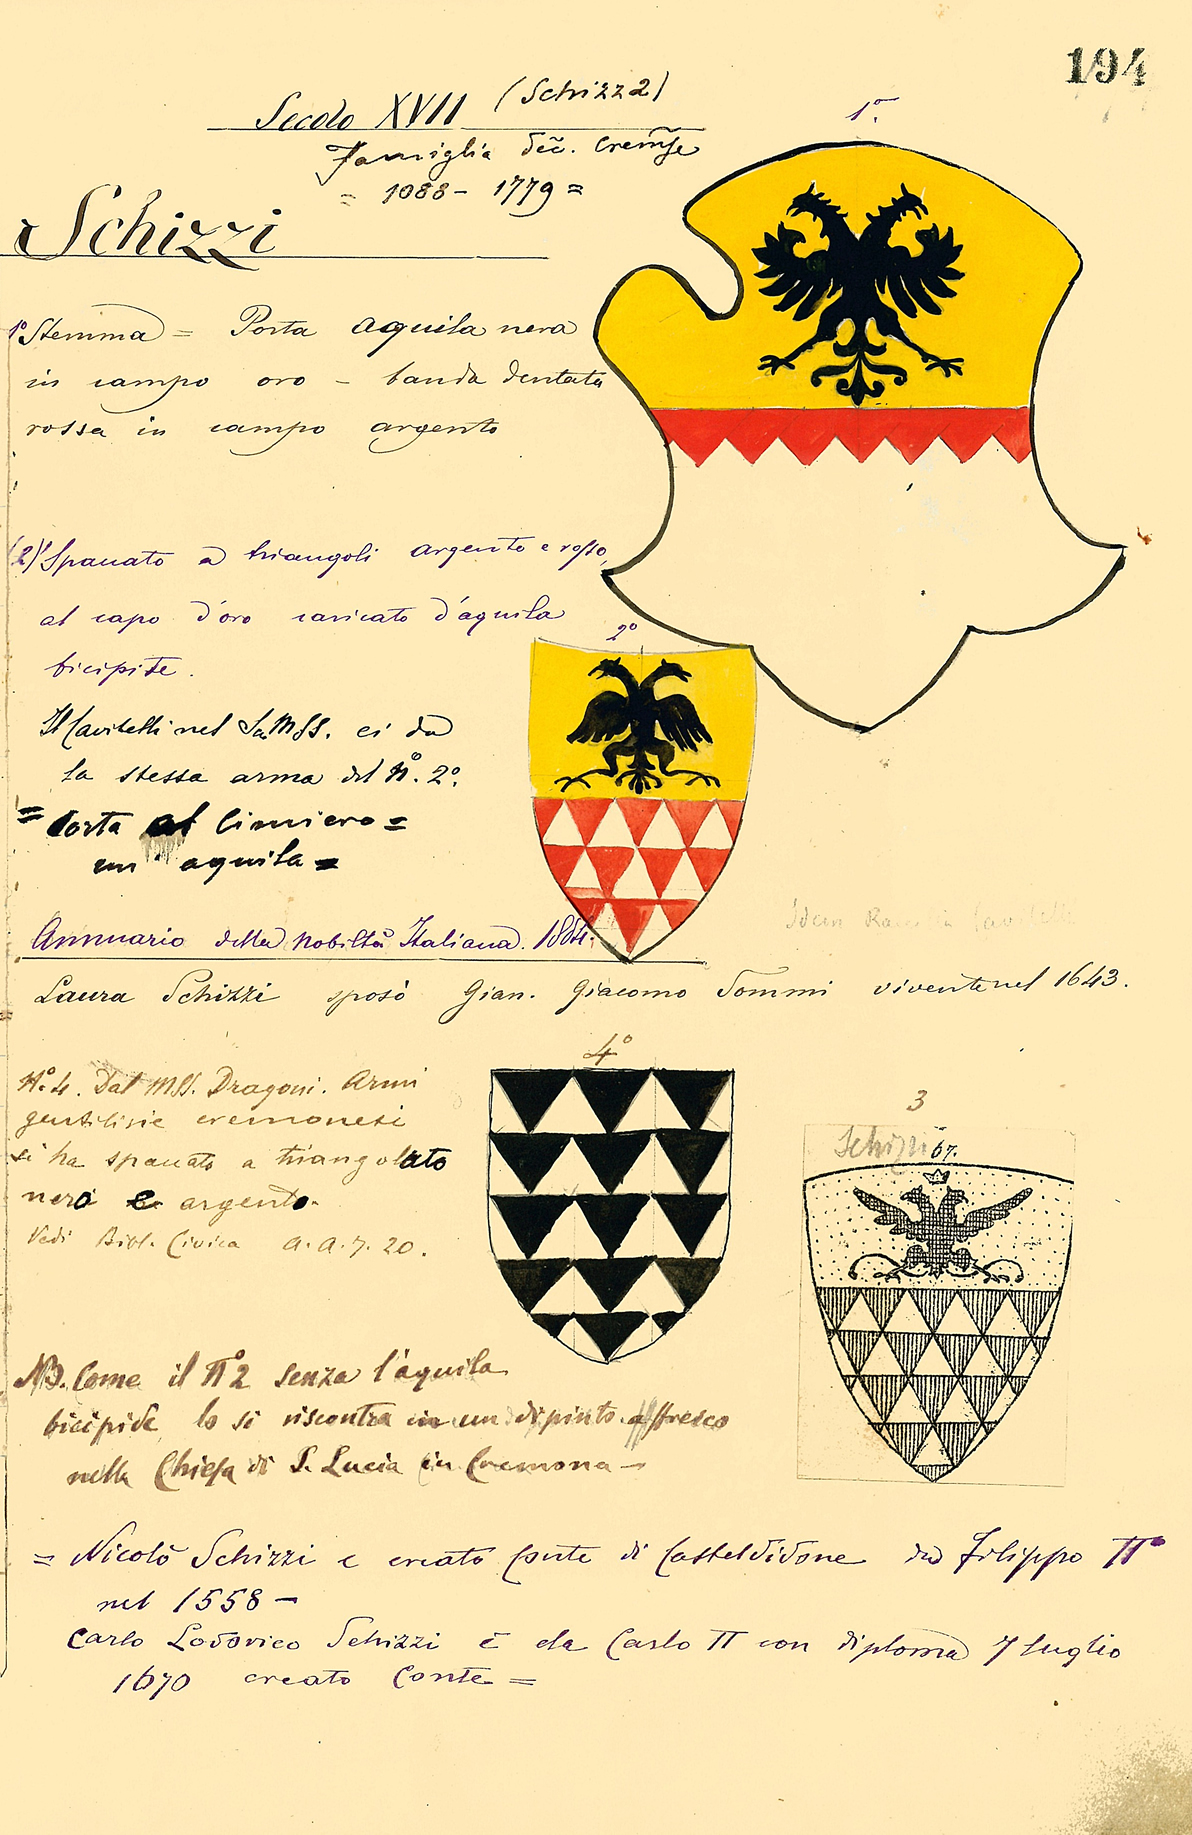 194
Secolo XVII (Schizza)
Famiglia dec. Cremse
= 1088 - 1779 =
Schizzi
1º
1º Stemma = Porta aquila nera
in campo oro - banda dentata
rossa in campo argento
(2) Spaccato a triangoli argento e rosso,
al capo d'oro caricato d'aquila
bicipite.
2º
Il Cavitelli nel MSS. ci dà
la stessa arma del Nº. 2º.
= Porta al cimiero =
un aquila =
Annuario della nobiltà Italiana. 1884.
Laura Schizzi sposò Gian. Giacomo Sommi vivente nel 1643.
4º
Nº. 4. Dal MSS. Dragoni. Armi
gentilizie cremonesi
si ha spaccato a triangolato
nero e argento.
Vedi Bibl. Civica A. A. 7. 20.
3
Schizzi 67.
NB. Come il Nº 2 senza l'aquila
bicipide lo si riscontra in un dipinto affresco
nella Chiesa di S. Lucia in Cremona -
= Nicolò Schizzi e creato Conte di Casteldidone da Filippo IIº
nel 1558 -
Carlo Lodovico Schizzi è da Carlo II con diploma 7 luglio
1670 creato Conte =